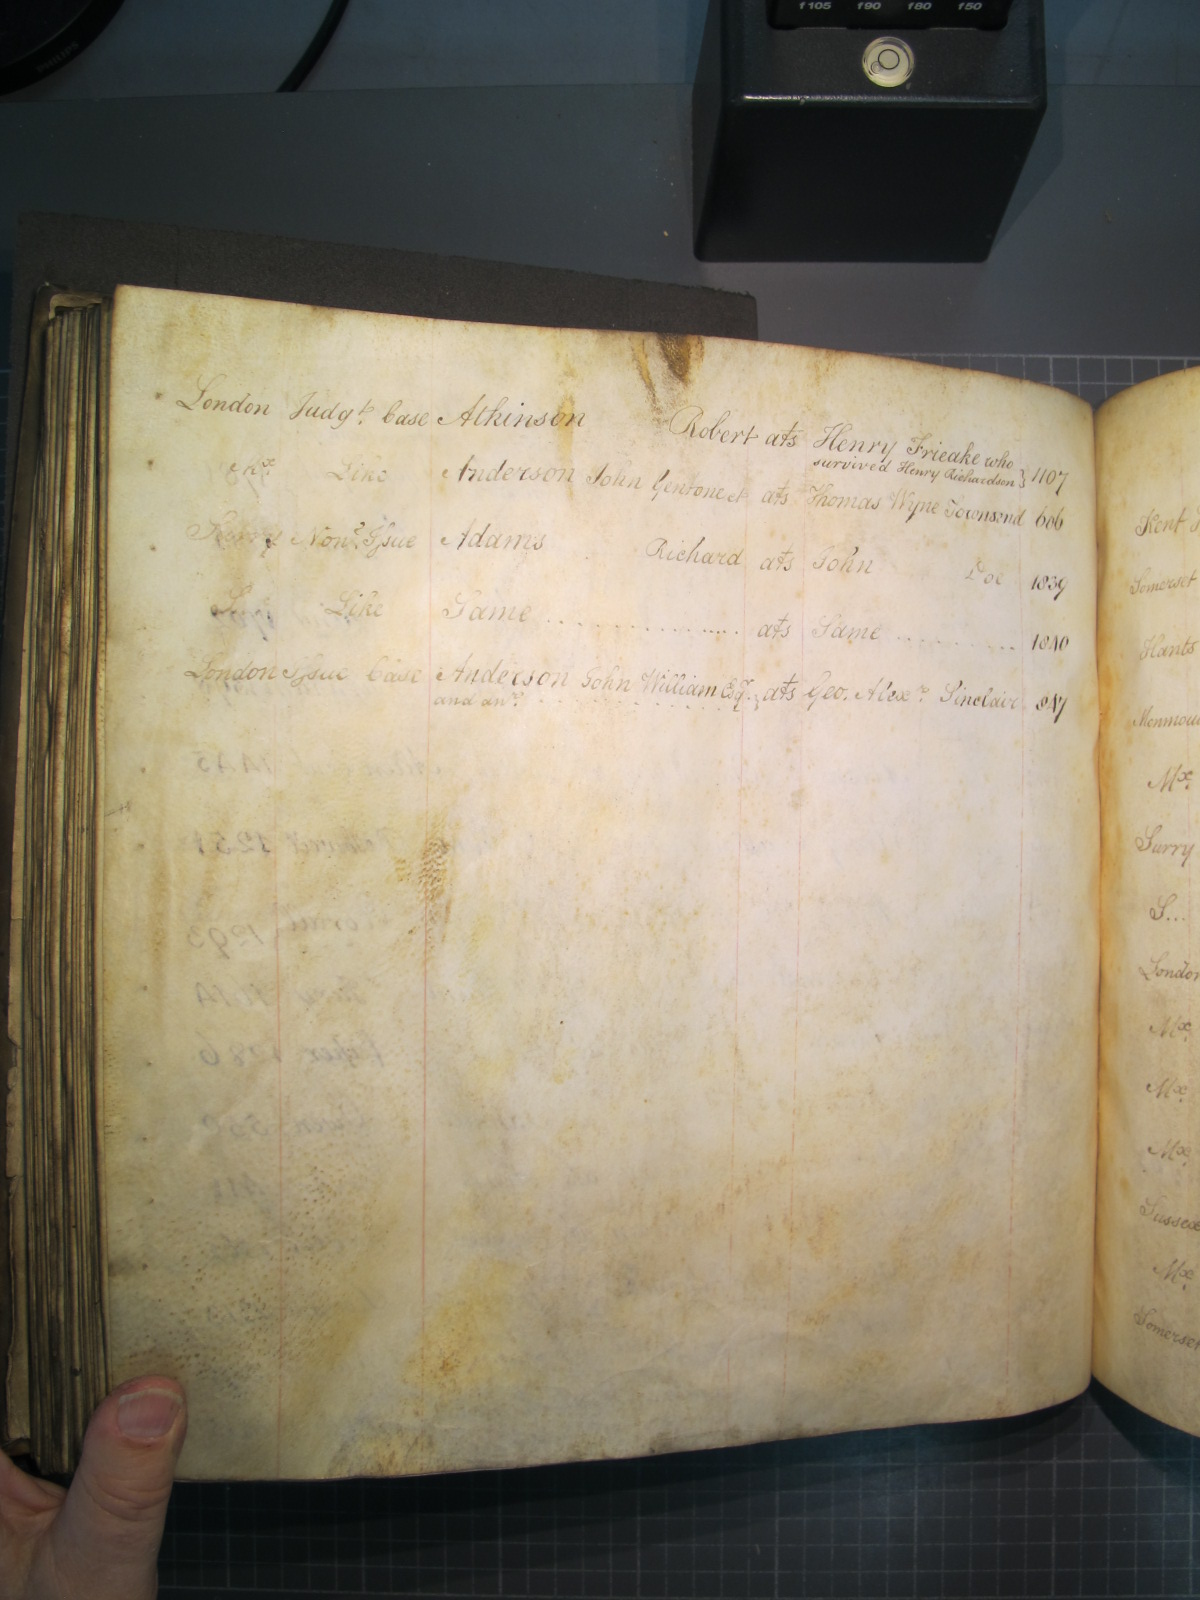 f105 f90 f80 f50
PHILIPS
London Judgt. Case Atkinson Robert ats Henry Frieake who
survived Henry Richardson } 1107
Mx. Like Anderson John Gentone et ats Thomas Wyne Townsend 606
Surry Nont. Issue Adams Richard ats John Doe 1839
S Like Same ats Same 1840
London Issue Case Anderson John William Esqr. ats Geo. Alexr. Sinclair 847
and anr.
Kent
Somerset
Hants
Monmou
Mx.
Surry
S...
London
Mx.
Mx.
Mx.
Sussex
Mx.
Somerset